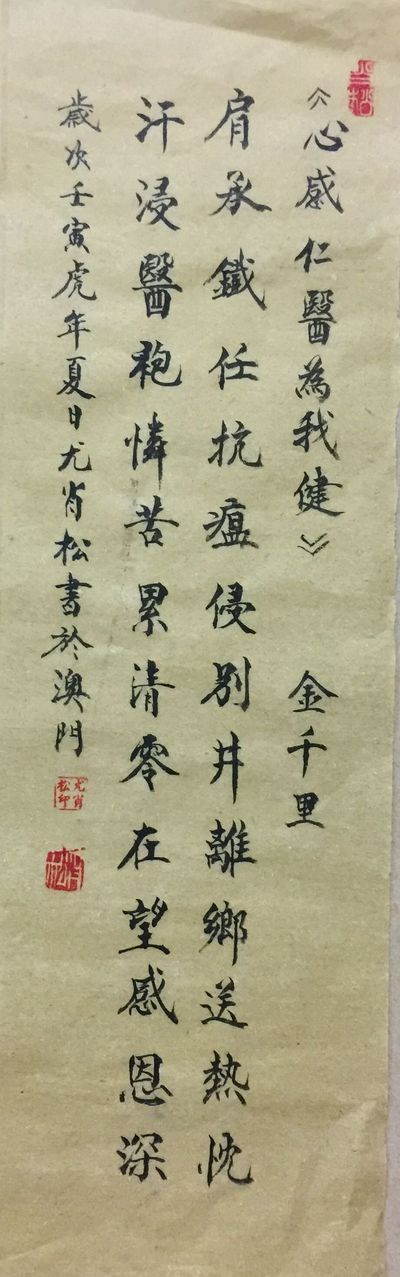 《心感仁醫為我健》 金千里
肩承鐵任抗瘟侵別井離鄉送熱忱
汗浸醫袍憐苦累清零在望感恩深
歲次壬寅虎年夏日尤肖松書於澳門
尤肖松印